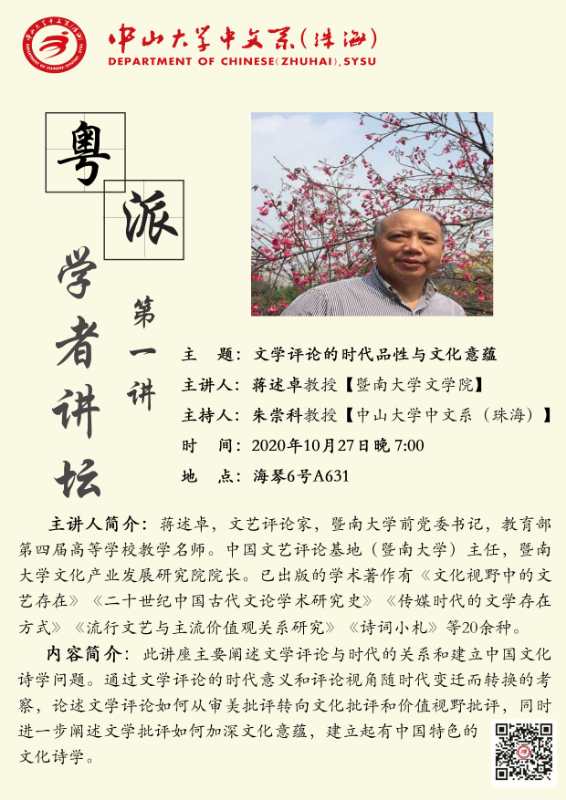 中山大学中文系(珠海)
DEPARTMENT OF CHINESE(ZHUHAI),SYSU
粤派
学者讲坛
第一讲
主 题：文学评论的时代品性与文化意蕴
主讲人：蒋述卓教授【暨南大学文学院】
主持人：朱崇科教授【中山大学中文系（珠海）】
时 间：2020年10月27日晚 7:00
地 点：海琴6号A631
主讲人简介：蒋述卓，文艺评论家，暨南大学前党委书记，教育部
第四届高等学校教学名师。中国文艺评论基地（暨南大学）主任，暨南
大学文化产业发展研究院院长。已出版的学术著作有《文化视野中的文
艺存在》《二十世纪中国古代文论学术研究史》《传媒时代的文学存在
方式》《流行文艺与主流价值观关系研究》《诗词小札》等20余种。
内容简介：此讲座主要阐述文学评论与时代的关系和建立中国文化
诗学问题。通过文学评论的时代意义和评论视角随时代变迁而转换的考
察，论述文学评论如何从审美批评转向文化批评和价值视野批评，同时
进一步阐述文学批评如何加深文化意蕴，建立起有中国特色的
文化诗学。